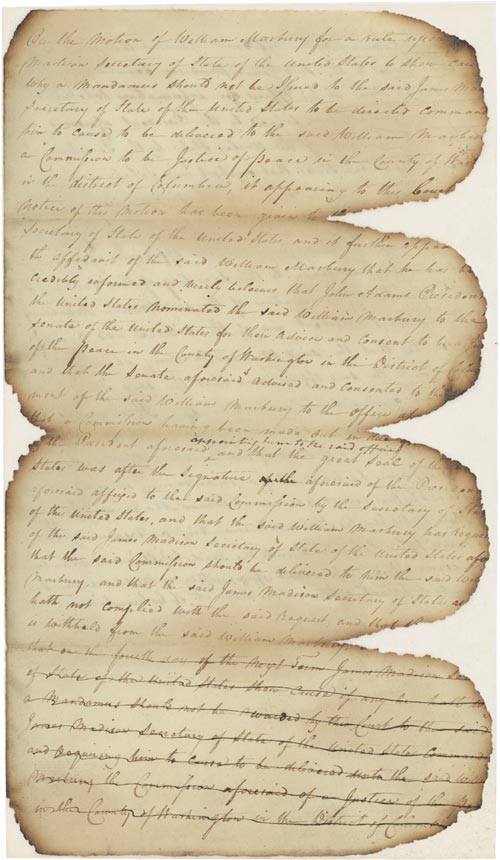 On the Motion of William Marbury for a rule upon
Madison Secretary of State of the United States to show cau
why a Mandamus should not be Issued to the said James M
Secretary of State of the United States to be directed comman
him to cause to be delivered to the said William Marbur
a Commission to be Justice of peace in the County of
in the district of Columbia, it appearing to this Court
notice of this Motion has been given to the
Secretary of State of the United States, and it further appea
the affidavit of the said William Marbury that he has
Credibly informed and verily believes that John Adams President
the United States Nominated the said William Marbury to the
Senate of the United States for their Advice and Consent to be a
of the peace in the County of Washington in the District of
and that the Senate aforesaid Advised and Consented to the
ment of the said William Marbury to the office
that a Commission having been made out in due
appointing him to the said office
the President aforesaid and that the great Seal of the
States was after the Signature aforesaid of the President
aforesaid affixed to the said Commission by the Secretary of Sta
of the United States, and that the said William Marbury has reque
of the said James Madison Secretary of State of the United States
that the said Commission should be delivered to him the said
Marbury and that the said James Madison Secretary of State
hath not complied with the said Request and that the
is withheld from the said William Marbury
that on the fourth day of the Next Term James Madison
of State of the United States show Cause if any he hath
a Mandamus should not be awarded by this Court to the said
James Madison Secretary of State of the United States Comman
and Requiring him to cause to be delivered unto the said
Marbury the Commission aforesaid of a Justice of the
in the County of Washington in the District of Colum